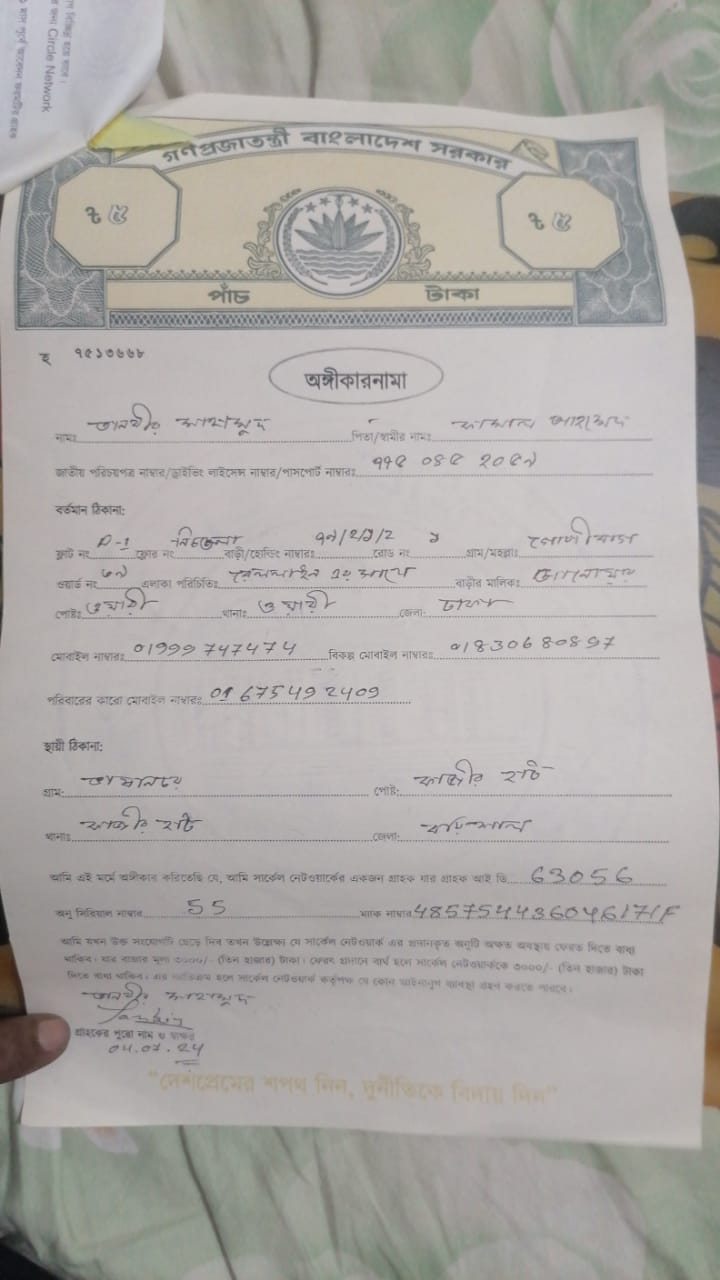 Circle Network
গণপ্রজাতন্ত্রী বাংলাদেশ সরকার
৳ ৫ ৳ ৫
পাঁচ টাকা
হ ৭৫১৩৬৬৮
অঙ্গীকারনামা
নামঃ তানভীর মাহামুদ পিতা/স্বামীর নামঃ আহমেদ
জাতীয় পরিচয়পত্র নাম্বার/ড্রাইভিং লাইসেন্স নাম্বার/পাসপোর্ট নাম্বারঃ ৭৭৫ ০৪৫ ২০৫৭
বর্তমান ঠিকানা:
ফ্লাট নং D-1 ফ্লোর নং নিচতলা বাড়ী/হোল্ডিং নাম্বারঃ ৭৭/২/১/২ রোড নং গ্রাম/মহল্লাঃ গোপীবাগ
ওয়ার্ড নং এলাকা পরিচিতিঃ রেললাইন এর সাথে বাড়ীর মালিকঃ
পোষ্টঃ ওয়ারী থানাঃ ওয়ারী জেলা: ঢাকা
মোবাইল নাম্বারঃ 01999747474 বিকল্প মোবাইল নাম্বারঃ 01830680897
পরিবারের কারো মোবাইল নাম্বারঃ 01675492409
স্থায়ী ঠিকানা:
গ্রাম: পোষ্ট: কাজীর হাট
থানাঃ কাজীর হাট জেলা: বরিশাল
আমি এই মর্মে অঙ্গীকার করিতেছি যে, আমি সার্কেল নেটওয়ার্কের একজন গ্রাহক যার গ্রাহক আই ডি 63056
অনু সিরিয়াল নাম্বার 55 ম্যাক নাম্বার 485754436046171F
আমি যখন উক্ত সংযোগটি ছেড়ে দিব তখন উল্লেখ্য যে সার্কেল নেটওয়ার্ক এর প্রদানকৃত অনুটি অক্ষত অবস্থায় ফেরত দিতে বাধ্য
থাকিব। যার বাজার মূল্য ৩০০০/- (তিন হাজার) টাকা। ফেরৎ প্রদানে ব্যর্থ হলে সার্কেল নেটওয়ার্ককে ৩০০০/- (তিন হাজার) টাকা
দিতে বাধ্য থাকিব। এর ব্যতিক্রম হলে সার্কেল নেটওয়ার্ক কর্তৃপক্ষ যে কোন আইনানুগ ব্যবস্থা গ্রহন করতে পারবে।
তানভীর মাহামুদ
গ্রাহকের পুরো নাম ও স্বাক্ষর
04.07.24
“দেশপ্রেমের শপথ নিন, দুর্নীতিকে বিদায় দিন”